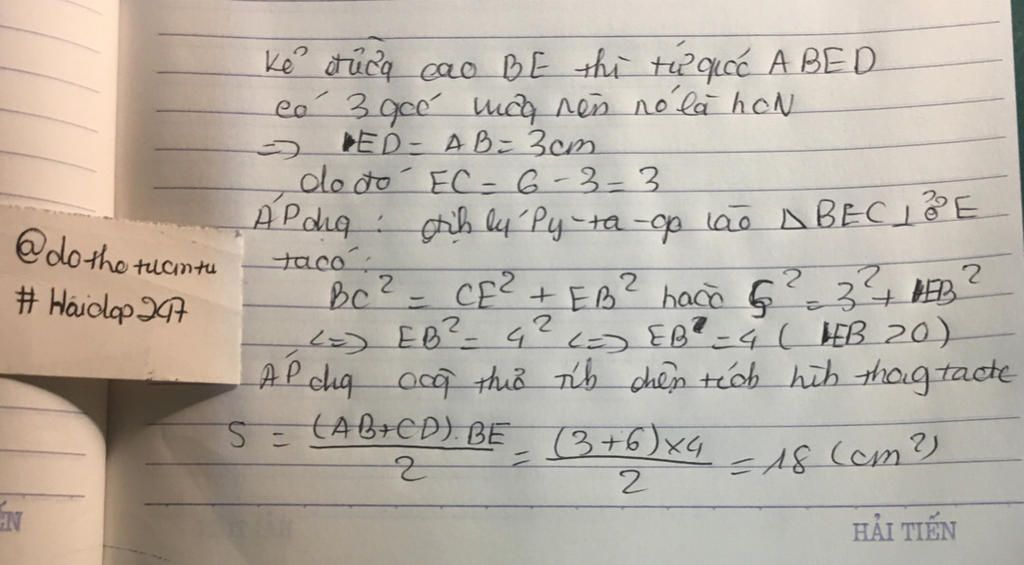 Kẻ đường cao BE thì tứ giác ABED
có 3 góc vuông nên nó là hcN
=> ED = AB = 3cm
do đó EC = 6 - 3 = 3
ÁP dụng : định lý Py-ta-go vào △BEC⊥ở E
ta có :
BC² = CE² + EB² hacò 5² = 3² + EB²
<=> EB² = 4² <=> EB = 4 ( EB >0)
ÁP dụng công thức tính diện tích hình thang ta có
S = (AB+CD).BE / 2 = (3+6)×4 / 2 = 18 (cm²)
@dothotucmtu
# Hoidap247
HẢI TIẾN